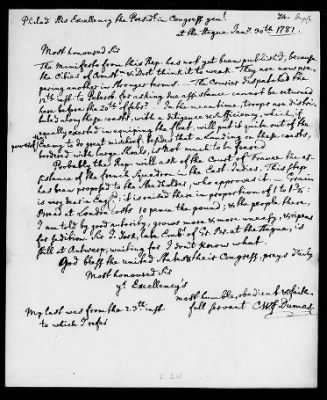 Philad. His Excellency the Presidt. in Congress genl.
at the Hague Janry 30th 1781.
Most honoured Sir
The Manifesto from this Rep. has not yet been published, because
the Cities of Amst. & did think it to weak. They are now pre-
paring another in stronger terms. The Courier dispatched the
12th inst. to Petersb. for asking due assistance cannot be returned
here before the 20th of febr. In the mean time, troops are distri-
buted along these coasts, with a diligence & sufficiency, which, if
equally exerted in equiping the fleet, will put it quite out of the
power of Enemy to do great mischief, besides that a Landing on these coasts,
bordered with large shoals, is not much to be feared
Probably this Rep. will ask of the Court of France the as-
sistance of the french Squadron in the East Indies. This step
has been proposed to the Stadholder, who approves it. Grain
is very dear in Engld.; it is raised there in proportion of 1 to 1 3/4:
Bread at London costs 10 pence the pound; & the people there,
I am told by good autority, grows more & more uneasy, & ripens
for Sedition. Sr. J. York, late Emb. of Gt. Br. at the Hague, is
still at Antwerp, waiting for I don't know what.
God bless the united States & their Congress, prays daily
Most honoured Sir
yr. Excellency's
most humble, obedient & faith-
full servant CWF Dumas
My last was from the 23th inst.
to which I refer